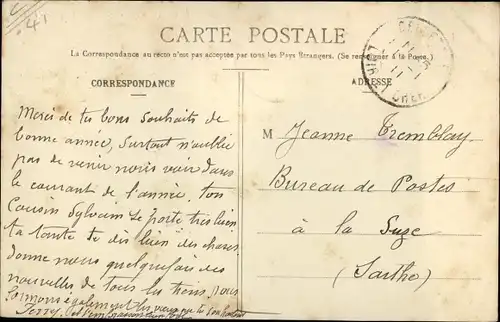 41
CARTE POSTALE
La Correspondance au recto n'est pas acceptée par tous les Pays Étrangers. (Se renseigner à la Poste.)
CORRESPONDANCE
ADRESSE
Merci de tes bons souhaits de
bonne année, surtout n'oublie
pas de venir nous voir dans
le courant de l'année, ton
Cousin Sylvain se porte très bien
ta tante te dis bien des choses
donne nous quelquefois des
nouvelles de tous les tiens, nous
formons également des vœux
M Jeanne Tremblay
Bureau de Postes
à la Suze
(Sarthe)